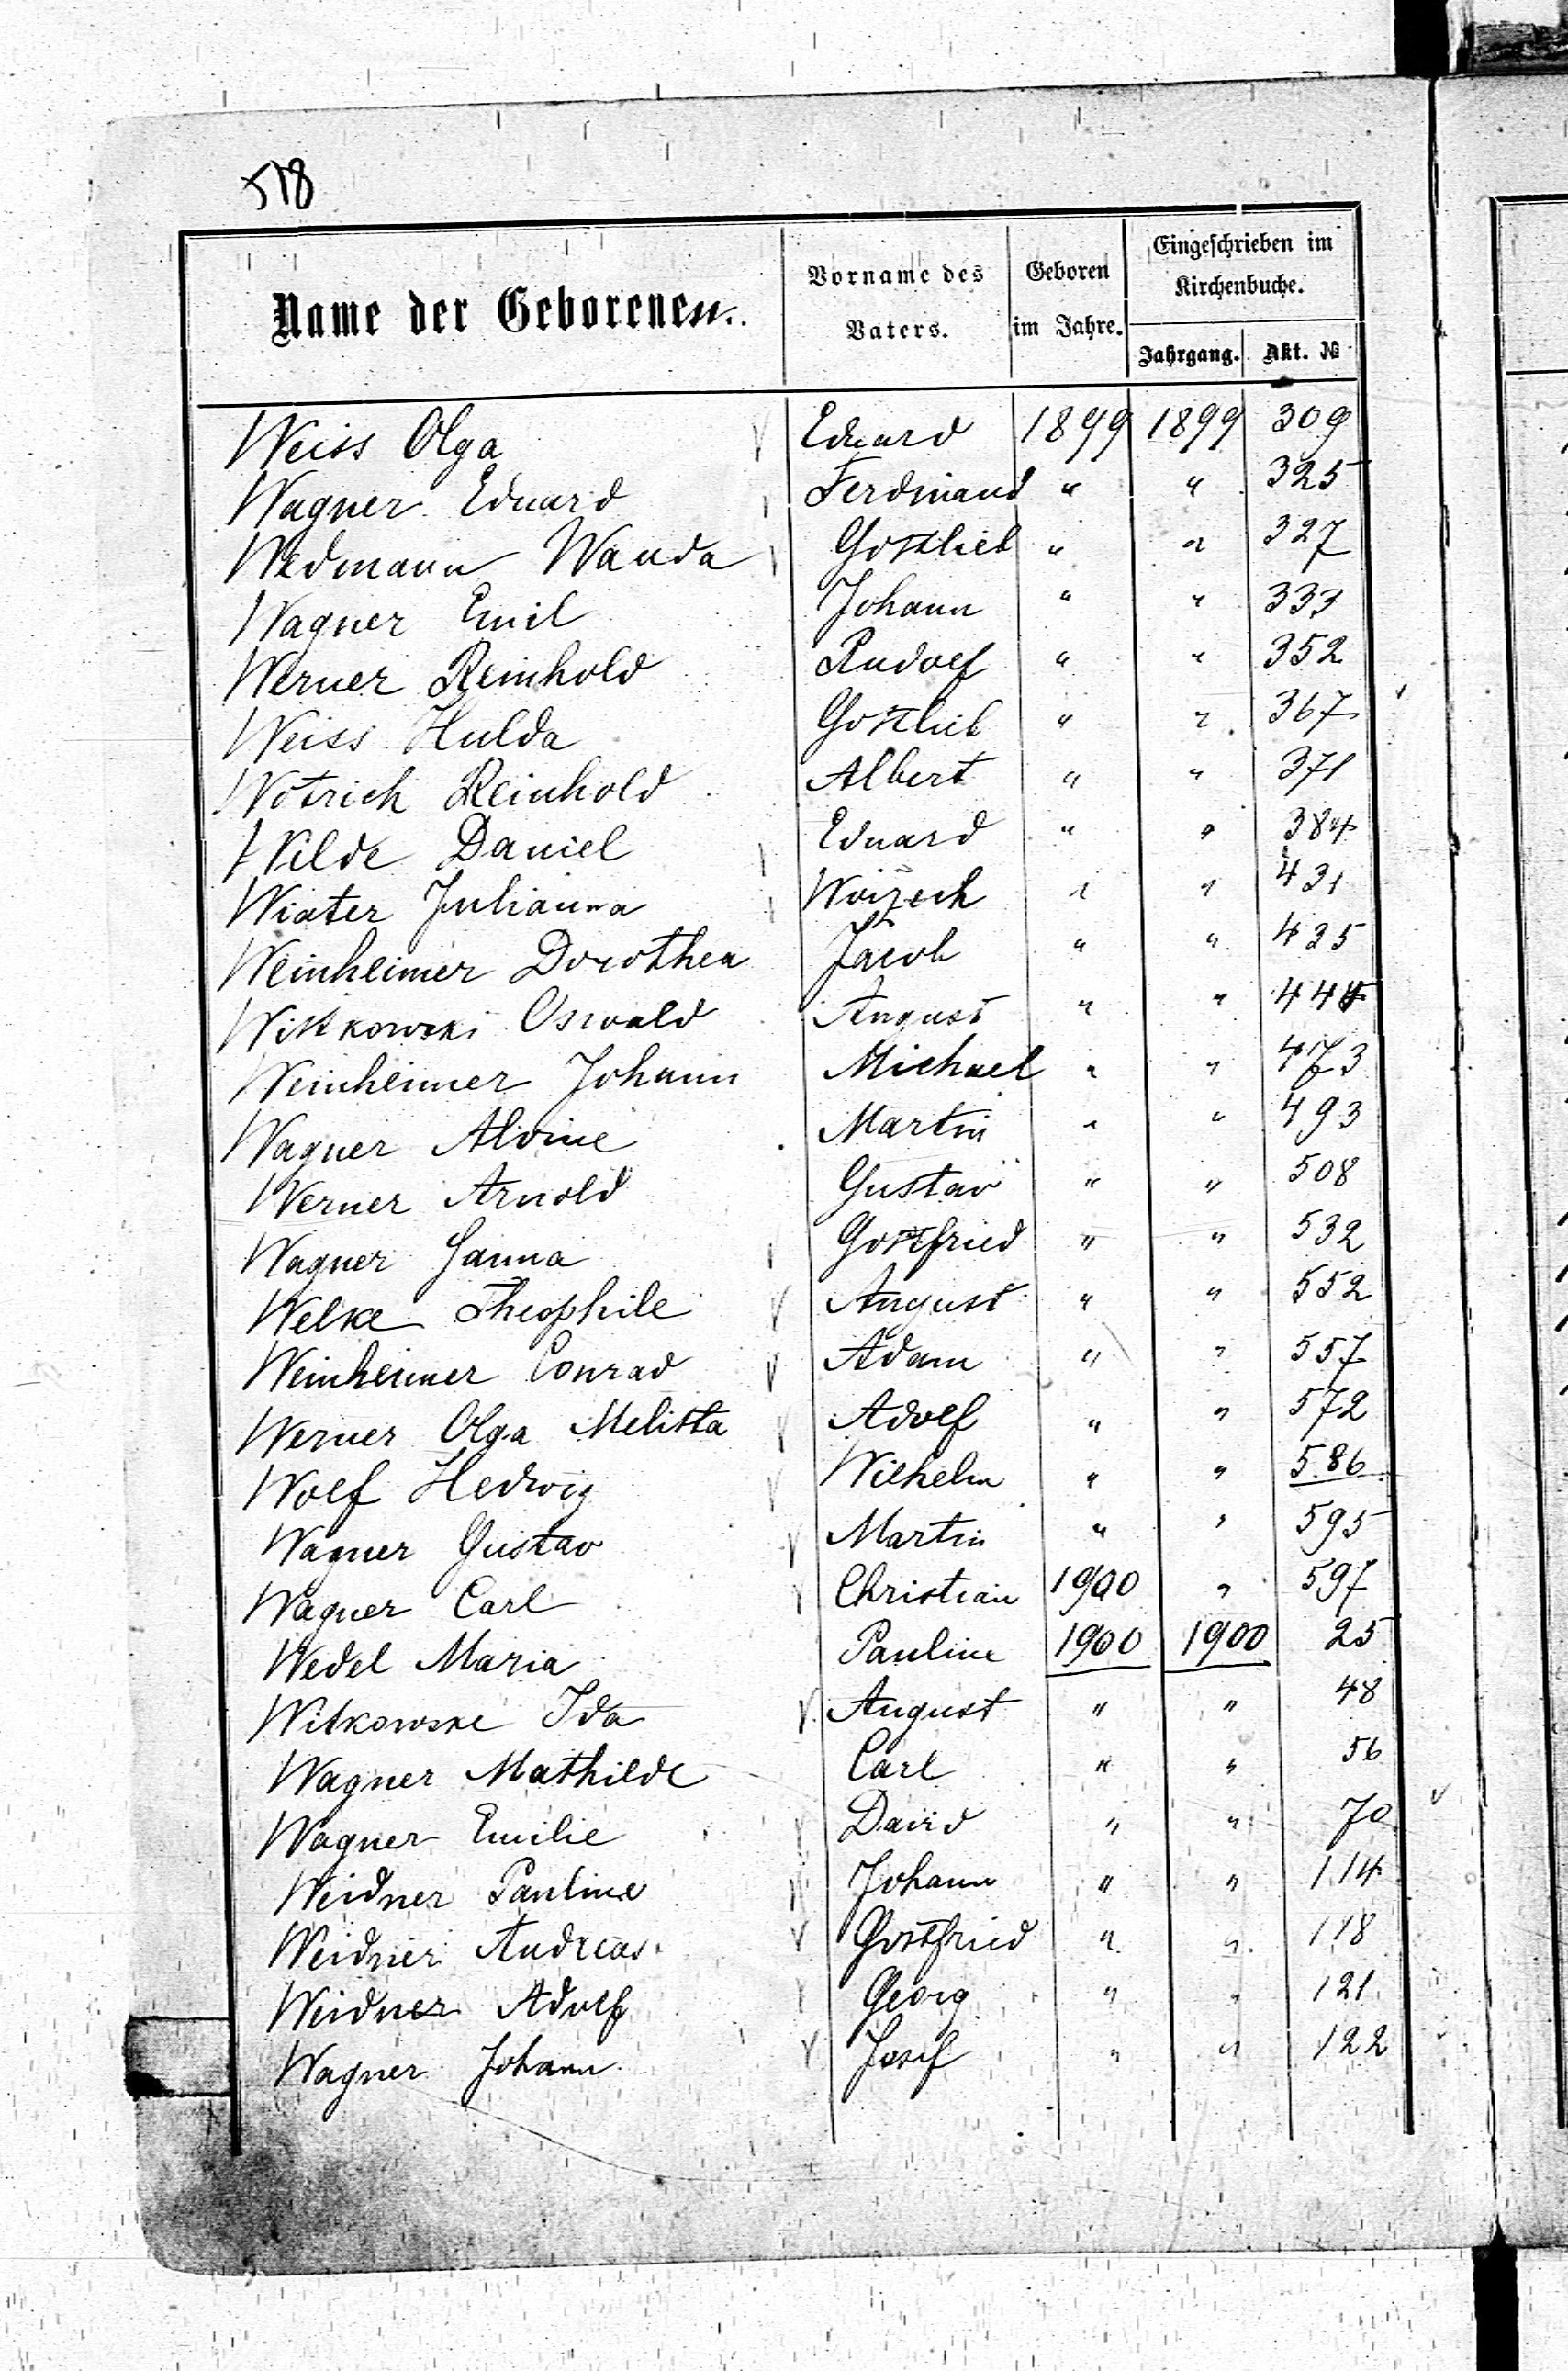 518
Name der Geborenen. Vorname des Vaters. Geboren im Jahre. Eingeschrieben im Kirchenbuche. Jahrgang. Akt. №
Weiss Olga Eduard 1899 1899 309
Wagner Eduard Ferdinand " " 325
Wedmann Wanda Gottlieb " " 327
Wagner Emil Johann " " 333
Werner Reinhold Rudolf " " 352
Weiss Hulda Gottlieb " " 367
Wotrich Reinhold Albert " " 371
Wilde Daniel Eduard " " 384
Wiater Julianna Woizech " " 431
Weinheimer Dorothea Jacob " " 435
Wittkowski Oswald August " "
Weinheimer Johann Michael " " 473
Wagner Alvine Martin " " 493
Werner Arnold Gustav " " 508
Wagner Hanna Gottfried " " 532
Welke Theophile August " " 552
Weinheimer Conrad Adam " " 557
Werner Olga Melitta Adolf " " 572
Wolf Hedwig Wilhelm " " 586
Wagner Gustav Martin " " 595
Wagner Carl Christian 1900 " 597
Wedel Maria Pauline 1900 1900 25
Witkowske Ida August " " 48
Wagner Mathilde Carl " " 56
Wagner Emilie David " " 70
Weidner Pauline Johann " " 114
Weidner Andreas Gottfried " " 118
Weidner Adolf Georg " " 121
Wagner Johann Josef " " 122